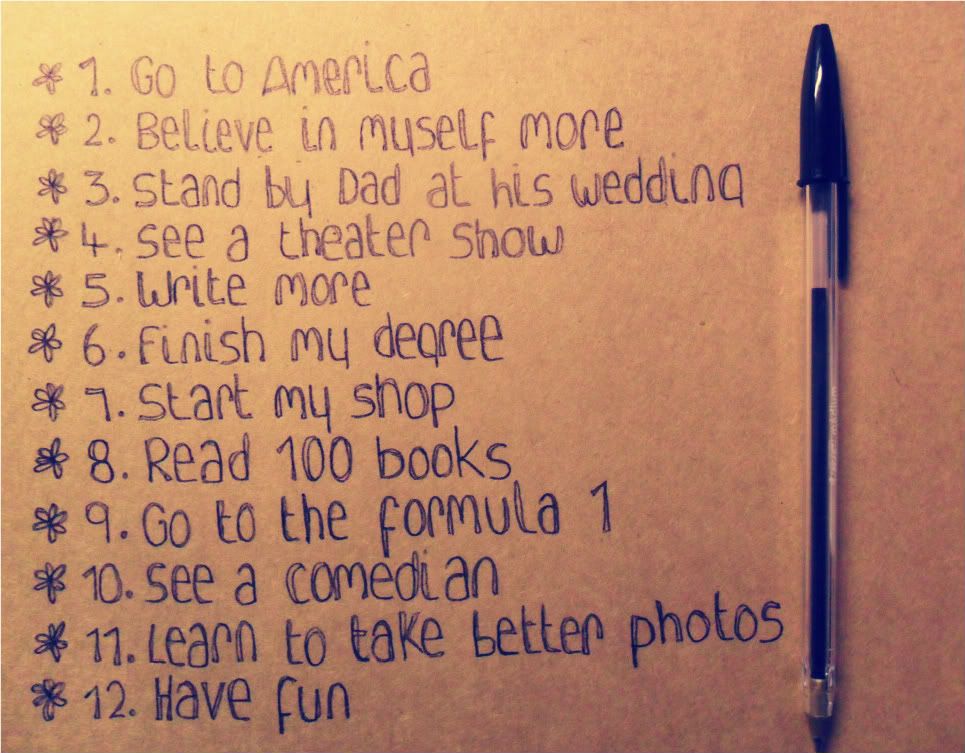 * 1. Go to America
* 2. Believe in myself more
* 3. Stand by Dad at his wedding
* 4. See a theater show
* 5. Write more
* 6. Finish my degree
* 7. Start my shop
* 8. Read 100 books
* 9. Go to the formula 1
* 10. See a comedian
* 11. Learn to take better photos
* 12. Have fun